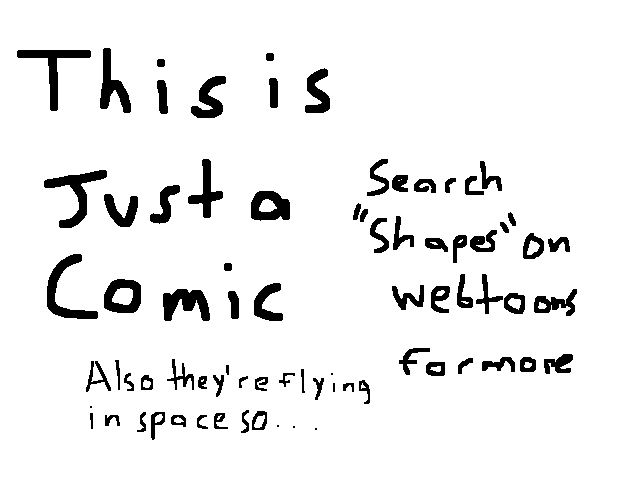 This is
Just a
Comic
Search
"Shapes" on
webtoons
for more
Also they're flying
in space so...